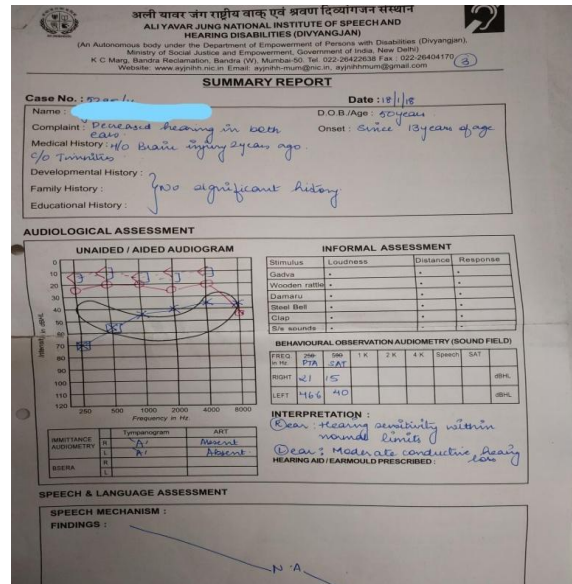 अली यावर जंग राष्ट्रीय वाक् एवं श्रवण दिव्यांगजन संस्थान
ALI YAVAR JUNG NATIONAL INSTITUTE OF SPEECH AND
HEARING DISABILITIES (DIVYANGJAN)
(An Autonomous body under the Department of Empowerment of Persons with Disabilities (Divyangjan),
Ministry of Social Justice and Empowerment, Government of India, New Delhi)
K C Marg, Bandra Reclamation, Bandra (W), Mumbai-50. Tel. 022-26422638 Fax : 022-26404170 3
Website: www.ayjnihh.nic.in Email: ayjnihh-mum@nic.in, ayjnihhmum@gmail.com
SUMMARY REPORT
Case No. : Date : 18/1/18
Name : D.O.B./Age : 50 years
Complaint : Decreased hearing in both ears. Onset : Since 13 years of age
Medical History : H/O Brain injury 2 years ago.
C/o Tinnitus
Developmental History :
Family History : No significant history
Educational History :
AUDIOLOGICAL ASSESSMENT
UNAIDED / AIDED AUDIOGRAM
0
10
20
30
40
50
60
70
80
90
100
110
120
Intensity in dBHL
250 500 1000 2000 4000 8000
Frequency in Hz.
Tympanogram ART
IMMITTANCE AUDIOMETRY R 'A' Absent
L 'A' Absent
BSERA R
L
INFORMAL ASSESSMENT
Stimulus Loudness Distance Response
Gadva
Wooden rattle
Damaru
Steel Bell
Clap
S/e sounds
BEHAVIOURAL OBSERVATION AUDIOMETRY (SOUND FIELD)
FREQ. in Hz. 250 500 1 K 2 K 4 K Speech SAT
PTA SAT
RIGHT 21 15 dBHL
LEFT 46.6 40 dBHL
INTERPRETATION :
R ear : Hearing sensitivity within
normal limits
L ear : Moderate conductive hearing
loss
HEARING AID / EARMOULD PRESCRIBED :
SPEECH & LANGUAGE ASSESSMENT
SPEECH MECHANISM :
FINDINGS :
N A